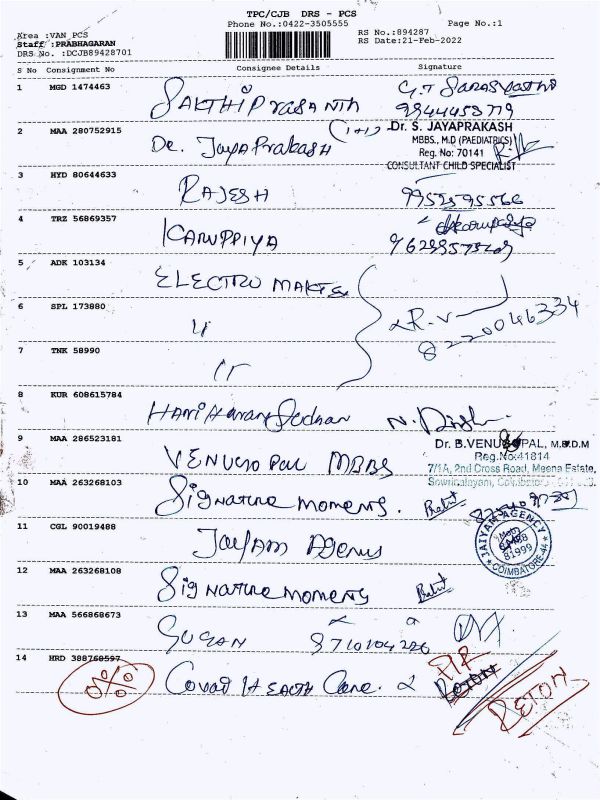 TPC/CJB DRS - PCS
Phone No.:0422-3505555
Page No.:1
Area :VAN PCS
RS No.:894287
Staff :PRABHAGARAN
RS Date:21-Feb-2022
DRS No. :DCJB89428701
S No Consignment No Consignee Details Signature
1 MGD 1474463 SAKTHI PRASANTH G.T SARASWATHI
9944453779
2 MAA 280752915 De. JayaPrakash (1+1) Dr. S. JAYAPRAKASH
MBBS., M.D (PAEDIATRICS)
Reg. No: 70141
CONSULTANT CHILD SPECIALIST
3 HYD 80644633 RAJESH 9952595566
4 TRZ 56869357 KARUPPIYA
5 ADK 103134 ELECTRO
6 SPL 173880 "
8220046334
7 TNK 58990 "
8 KUR 608615784 Hari Haran
9 MAA 286523181 VENUGOPAL MBBS Dr. B.VENUGOPAL, M.B,D.M
Reg.No:41814
7/1A, 2nd Cross Road, Meena Estate,
Sowripalayam, Coimbatore
10 MAA 263268103 Signature moments.
11 CGL 90019488 Jaiyam Agency JAIYAM AGENCY
81999
COIMBATORE-44
12 MAA 263268108 Signature moments
13 MAA 566868673 SUGAN 8710104226
14 HRD 388768597 Covai Health Care. RETON
RETON